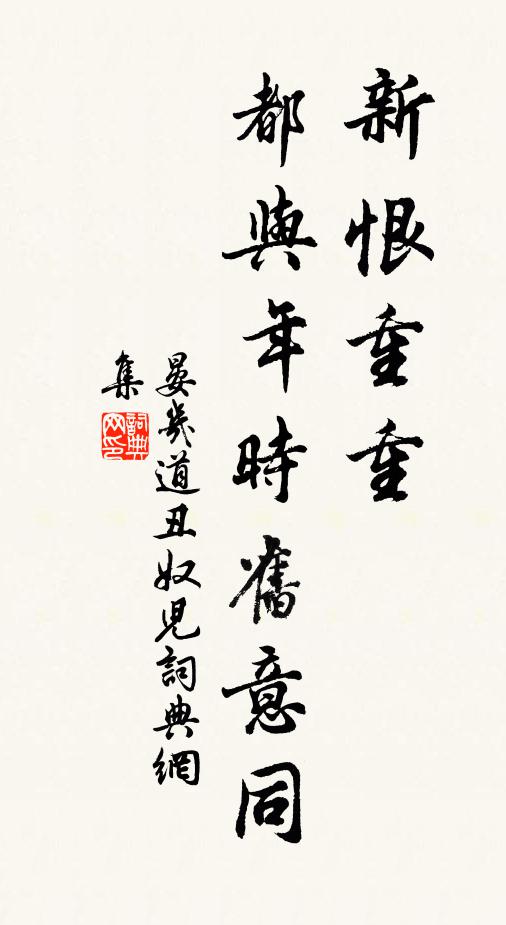 新恨重重
都與年時舊意同
晏幾道丑奴兒詞典網
集
詞典
网印